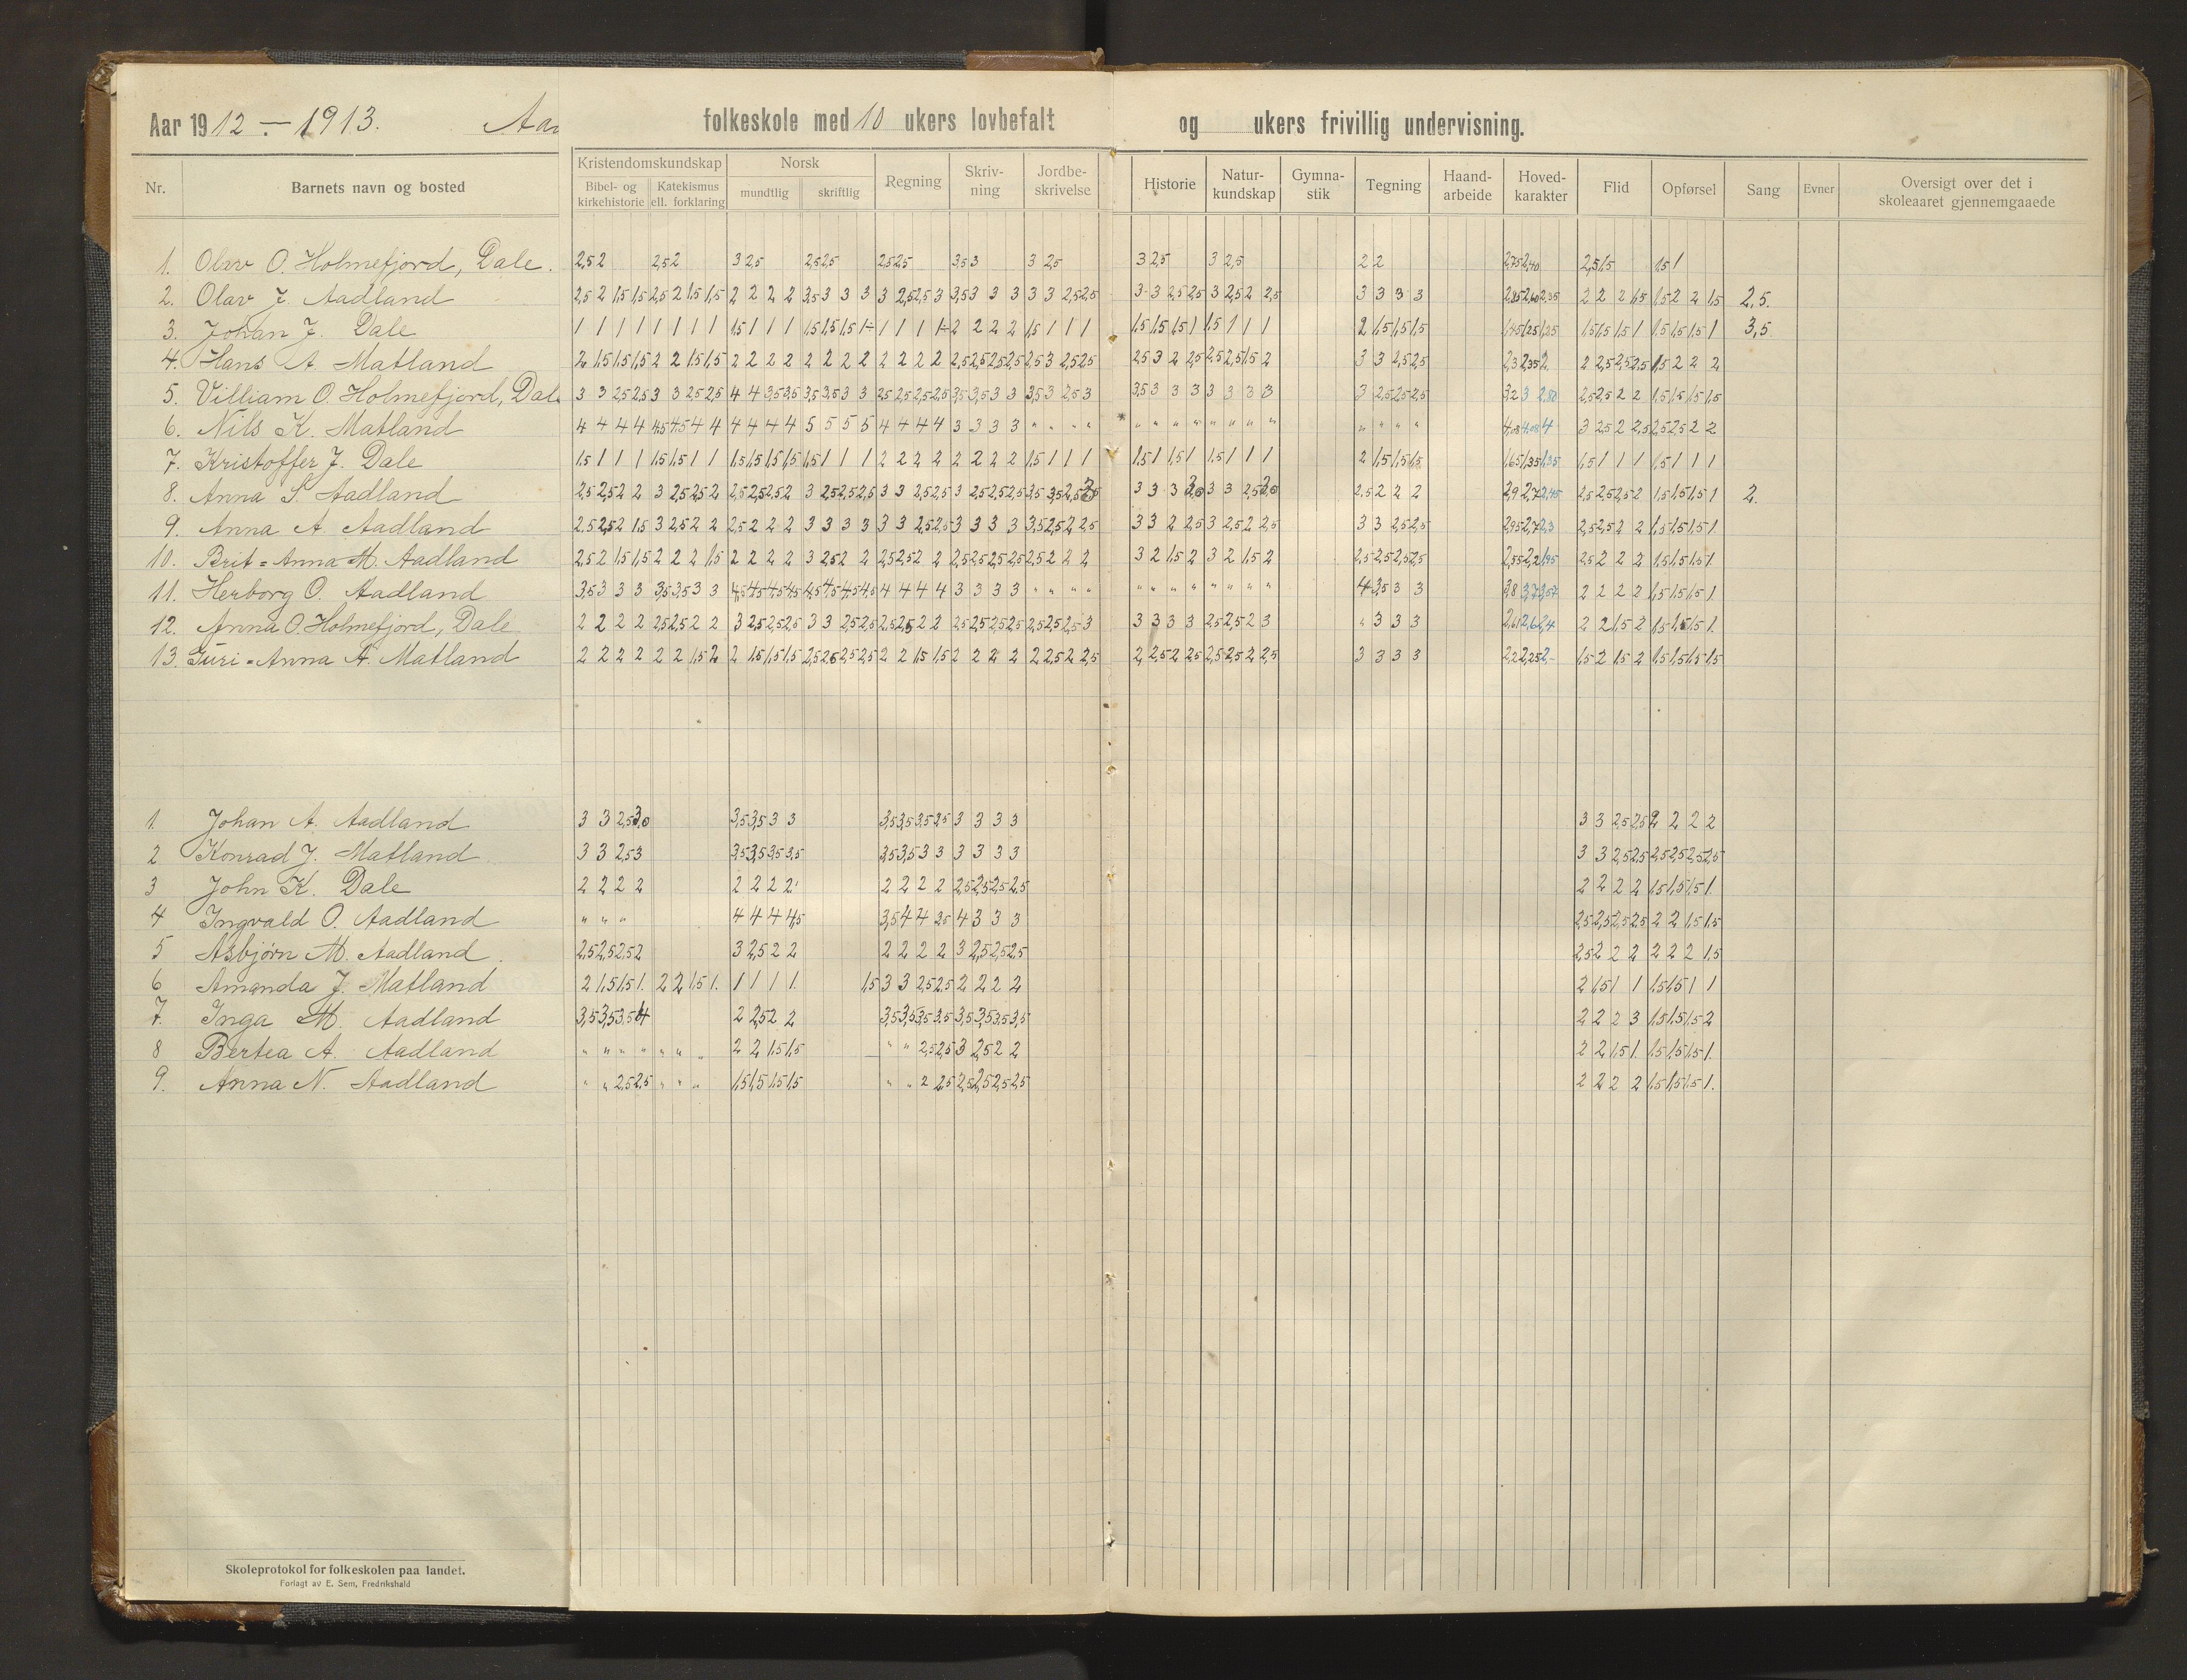 Aar 1912 - 1913. Aa folkeskole med 10 ukers lovbefalt og ukers frivillig undervisning.
Nr. Barnets navn og bosted Kristendomskundskap Bibel- og kirkehistorie Katekismus ell. forklaring Norsk mundtlig skriftlig Regning Skriv-ning Jordbe-skrivelse Historie Natur-kundskap Gymna-stik Tegning Haand-arbeide Hoved-karakter Flid Opførsel Sang Evner Oversigt over det i skoleaaret gjennemgaaede
1. Olav O. Holmefjord, Dale. 2,5 2 2,5 2 3 2,5 2,5 2,5 2,5 2,5 3,5 3 3 2,5 3 2,5 3 2,5 2 2 2,75 2,40 2,5 1,5 1,5 1
2. Olav J. Aadland 2,5 2 1,5 1,5 2,5 2 1,5 1,5 2 2 2 2 3,5 3 3 3 3 2,5 2,5 3 3,5 3 3 3 3 3 2,5 2,5 3 3 2,5 2,5 3 2,5 2 2,5 3 3 3 3 2 2 2 1,5 1,5 2 2 1,5 2,5.
3. Johan J. Dale 1 1 1 1 1 1 1 1 1,5 1 1 1 2 2 2 2 1,5 1 1 1 1,5 1,5 1,5 1 1,5 1 1 1 2 1,5 1,5 1,5 1,5 1,5 1,5 1 1,5 1,5 1,5 1 3,5.
4. Hans A. Matland 2 1,5 1,5 1,5 2 2 1,5 1,5 2 2 2 2 2 2 2 2 2 2 2 2 2,5 2,5 2,5 2,5 2,5 3 2,5 2,5 2,5 3 2 2,5 2,5 2,5 1,5 2 3 3 2,5 2,5 2,3 2,35 2. 2 2,5 2,5 2,5 1,5 2 2 2
5. Villiam O. Holmefjord, Dal 3 3 2,5 2,5 3 3 2,5 2,5 4 4 3,5 3,5 3,5 3,5 3 3 2,5 2,5 2,5 2,5 3,5 3,5 3 3 3,5 3 2,5 3 3,5 3 3 3 3 3 3 3 3 2,5 2,5 2,5 2,5 2,5 2 2 1,5 1,5 1,5 1,5
6. Nils K. Matland 4 4 4 4 4,5 4,5 4 4 4 4 4 4 5 5 5 5 4 4 4 4 3 3 3 3 " " " " * " " " " " " " " " " " " 4,08 4,08 4 3 2,5 2 2,5 2,5 2,5 2 2
7. Kristoffer J. Dale 1,5 1 1 1 1,5 1,5 1 1 1,5 1,5 1,5 1,5 1,5 1 1 1 2 2 2 2 2 2 2 2 1,5 1 1 1 1,5 1 1,5 1 1,5 1 1 1 2 1,5 1,5 1,5 1,65 1,35 1,35 1,5 1 1 1 1,5 1 1 1
8. Anna S. Aadland 2,5 2,5 2 2 3 2,5 2,5 2 2,5 2,5 2,5 2 3 2,5 2,5 2,5 3 3 2,5 2,5 3 2,5 2,5 2,5 3,5 3,5 2,5 3 3 3 3 3 2,5 2,5 2 2 2 2,9 2,7 2,45 2,5 2,5 2,5 2 1,5 1,5 1,5 1 2.
9. Anna A. Aadland 2,5 2,5 2 1,5 3 2,5 2 2 2,5 2 2 2 3 3 3 3 3 3 2,5 2,5 3 3 3 3 3,5 2,5 2 2,5 3 3 2 2,5 3 2,5 2 2,5 3 3 2,5 2,5 2,95 2,7 2,3 2,5 2,5 2 2 1,5 1,5 1,5 1.
10. Brit=Anna M. Aadland 2,5 2 1,5 1,5 2 2 2 1,5 2 2 2 2 3 2,5 2 2 2,5 2,5 2 2 2,5 2,5 2,5 2,5 2,5 2 2 2 3 2 1,5 2 3 2 1,5 2 2,5 2,5 2,5 2,5 2,55 2,2 1,95 2,5 2 2 2 1,5 1,5 1,5 1
11. Herborg O. Aadland 3,5 3 3 3 3,5 3,5 3 3 4,5 4,5 4,5 4,5 4,5 4,5 4,5 4,5 4 4 4 4 3 3 3 3 " " " " " " " " " " " " 4 3,5 3 3 2 2 2 2 1,5 1,5 1,5 1
12. Anna O. Holmefjord, Dale 2 2 2 2 2,5 2,5 2 2 3 2,5 2,5 2,5 3 3 2,5 2,5 2,5 2,5 2 2 2,5 2,5 2,5 2,5 2,5 2,5 2,5 3 3 3 3 3 2,5 2,5 2 3 " 3 3 3 2 2 1,5 2 1,5 1,5 1,5 1.
13. Guri=Anna A. Matland 2 2 2 2 2 2 1,5 2 2 1,5 1,5 1,5 2,5 2,5 2,5 2,5 2 2 1,5 1,5 2 2 2 2 2 2,5 2 2,5 2 2,5 2 2,5 2,5 2,5 2 2,5 3 3 3 3 2,2 2,25 2,- 1,5 2 1,5 2 1,5 1,5 1,5 1,5
1. Johan A. Aadland 3 3 2,5 3,0 3,5 3,5 3 3 3,5 3,5 3,5 2,5 3 3 3 3 3 3 2,5 2,5 2 2 2 2
2 Konrad J. Matland 3 3 2,5 3 3,5 3,5 3,5 3,5 3,5 3,5 3 3 3 3 3 3 3 3 2,5 2,5 2,5 2,5 2,5 2,5
3 John K. Dale 2 2 2 2 2 2 2 2 2 2 2 2 2,5 2,5 2,5 2,5 2 2 2 2 1,5 1,5 1,5 1.
4 Ingvald O. Aadland " " " 4 4 4 4,5 3,5 4 4 3,5 4 3 3 3 2,5 2,5 2,5 2,5 2 2 1,5 1,5
5 Asbjørn M. Aadland. 2,5 2,5 2,5 2 3 2,5 2 2 2 2 2 2 3 2,5 2,5 2,5 2,5 2 2 2 2 2 2 1,5
6 Amanda J. Matland 2 1,5 1,5 1. 2 2 1,5 1. 1 1 1 1. 1,5 3 3 2,5 2,5 2 2 2 2 2 1,5 1 1 1,5 1,5 1 1
7. Inga M. Aadland 3,5 3,5 3,5 4 2 2,5 2 2 3,5 3,5 3,5 3,5 3,5 3,5 3,5 3,5 2 2 2 3 1,5 1,5 1,5 2
8 Bertea A. Aadland " " " " " " " 2 2 1,5 1,5 " " 2,5 2,5 3 2,5 2 2 2 2 1,5 1. 1,5 1,5 1,5 1.
9. Anna N. Aadland " " 2,5 2,5 " " " 1,5 1,5 1,5 1,5 " " 2 2,5 2,5 2,5 2,5 2,5 2 2 2 2 1,5 1,5 1,5 1.
Skoleprotokol for folkeskolen paa landet.
Forlagt av E. Sem, Fredrikshald